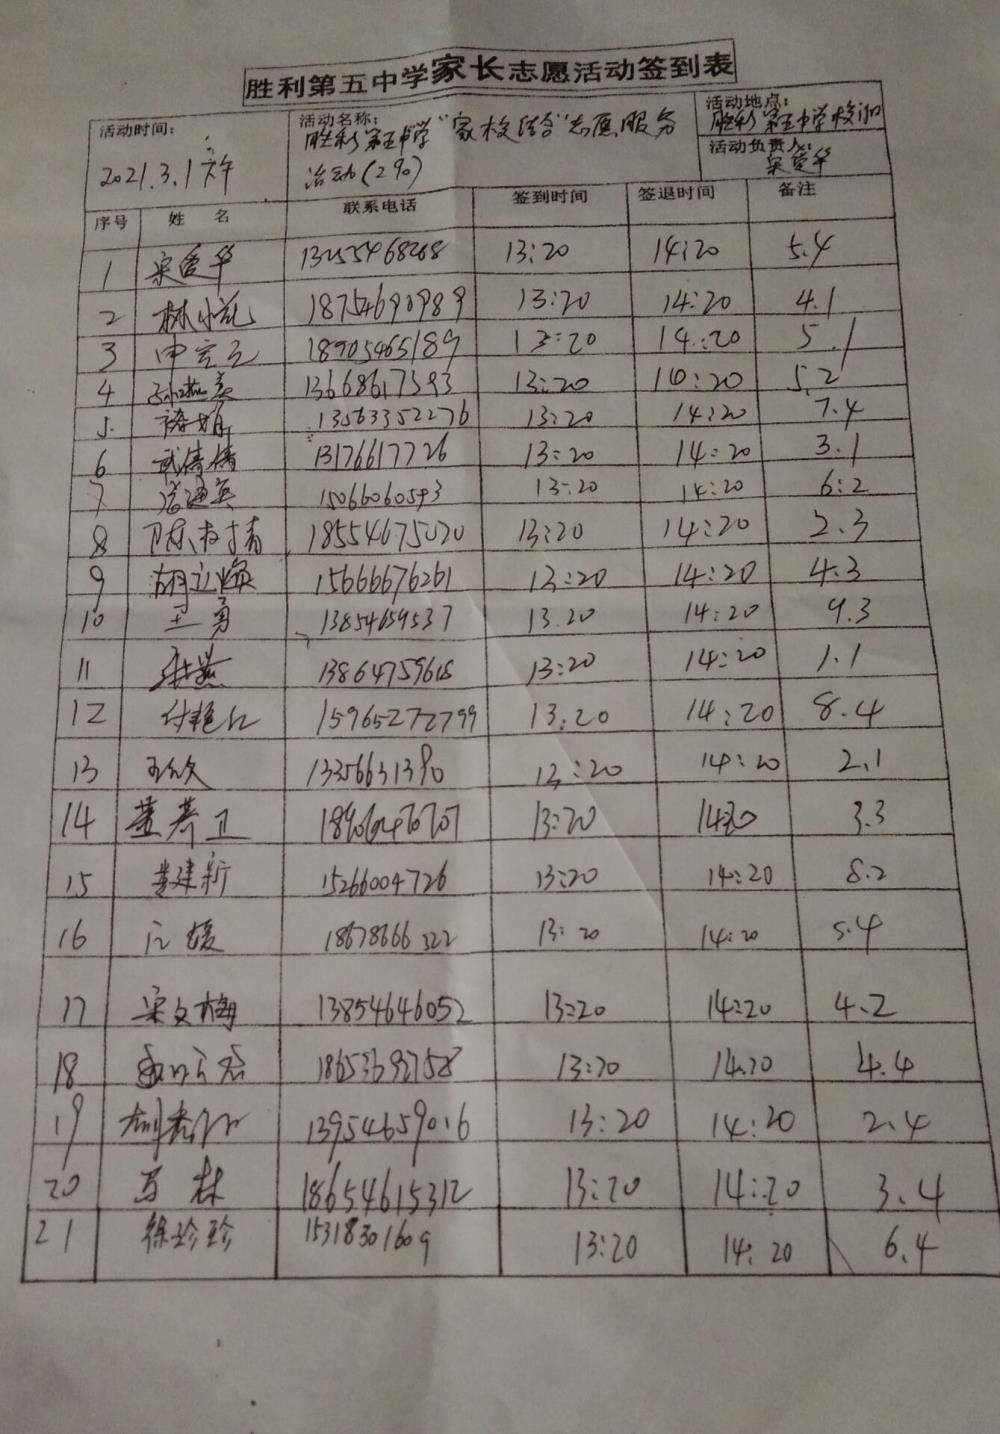 胜利第五中学家长志愿活动签到表
活动时间: 2021.3.1下午
活动名称: 胜利第五中学"家校结合"志愿服务
活动(290)
活动地点: 胜利第五中学校门口
活动负责人: 宋爱华
序号 姓名 联系电话 签到时间 签退时间 备注
1 宋爱华 13255468268 13:20 14:20 5.4
2 18754690989 13:20 14:20 4.1
3 18905465189 13:20 14:20 5.1
4 13668617393 13:20 14:20 5.2
5. 褚娟 13563352276 13:20 14:20 7.4
6 武倩倩 13176617726 13:20 14:20 3.1
7 15066060593 13:20 14:20 6:2
8 18554675020 13:20 14:20 2.3
9 胡立焕 15666676261 13:20 14:20 4.3
10 王勇 13854659537 13.20 14:20 9.3
11 张燕 13864759618 13:20 14:20 1.1
12 付艳红 15965272799 13:20 14:20 8.4
13 13356631390 13:20 14:20 2.1
14 13:20 1420 3.3
15 黄建新 15266004726 13:20 14:20 8.2
16 18678666322 13:20 14:20 5.4
17 宋文梅 13854646052 13:20 14:20 4.2
18 18653692758 13:20 14.20 4.4
19 13954659016 13:20 14:20 2.4
20 马林 18654615312 13:20 14:20 3.4
21 徐珍珍 15318301609 13:20 14:20 6.4